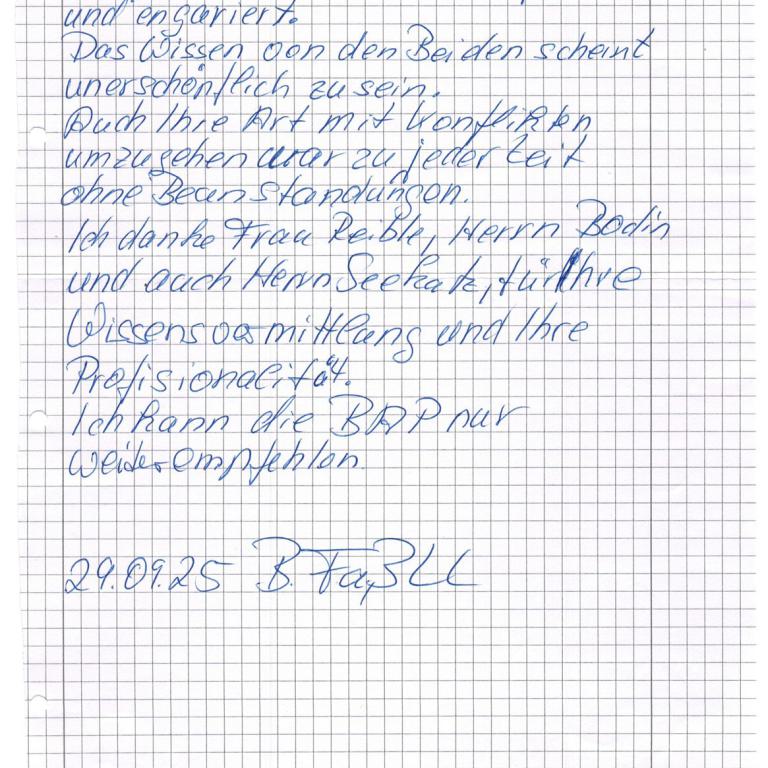 und engariert.
Das Wissen von den Beiden scheint
unerschöpflich zu sein.
Auch Ihre Art mit Konflikten
umzugehen war zu jeder Zeit
ohne Beanstandungen.
Ich danke Frau Reible, Herrn Bodin
und auch Herrn Seekatz, für Ihre
Wissensvermittlung und Ihre
Profisionalität.
Ich kann die BAP nur
weiterempfehlen.
29.09.25 B.